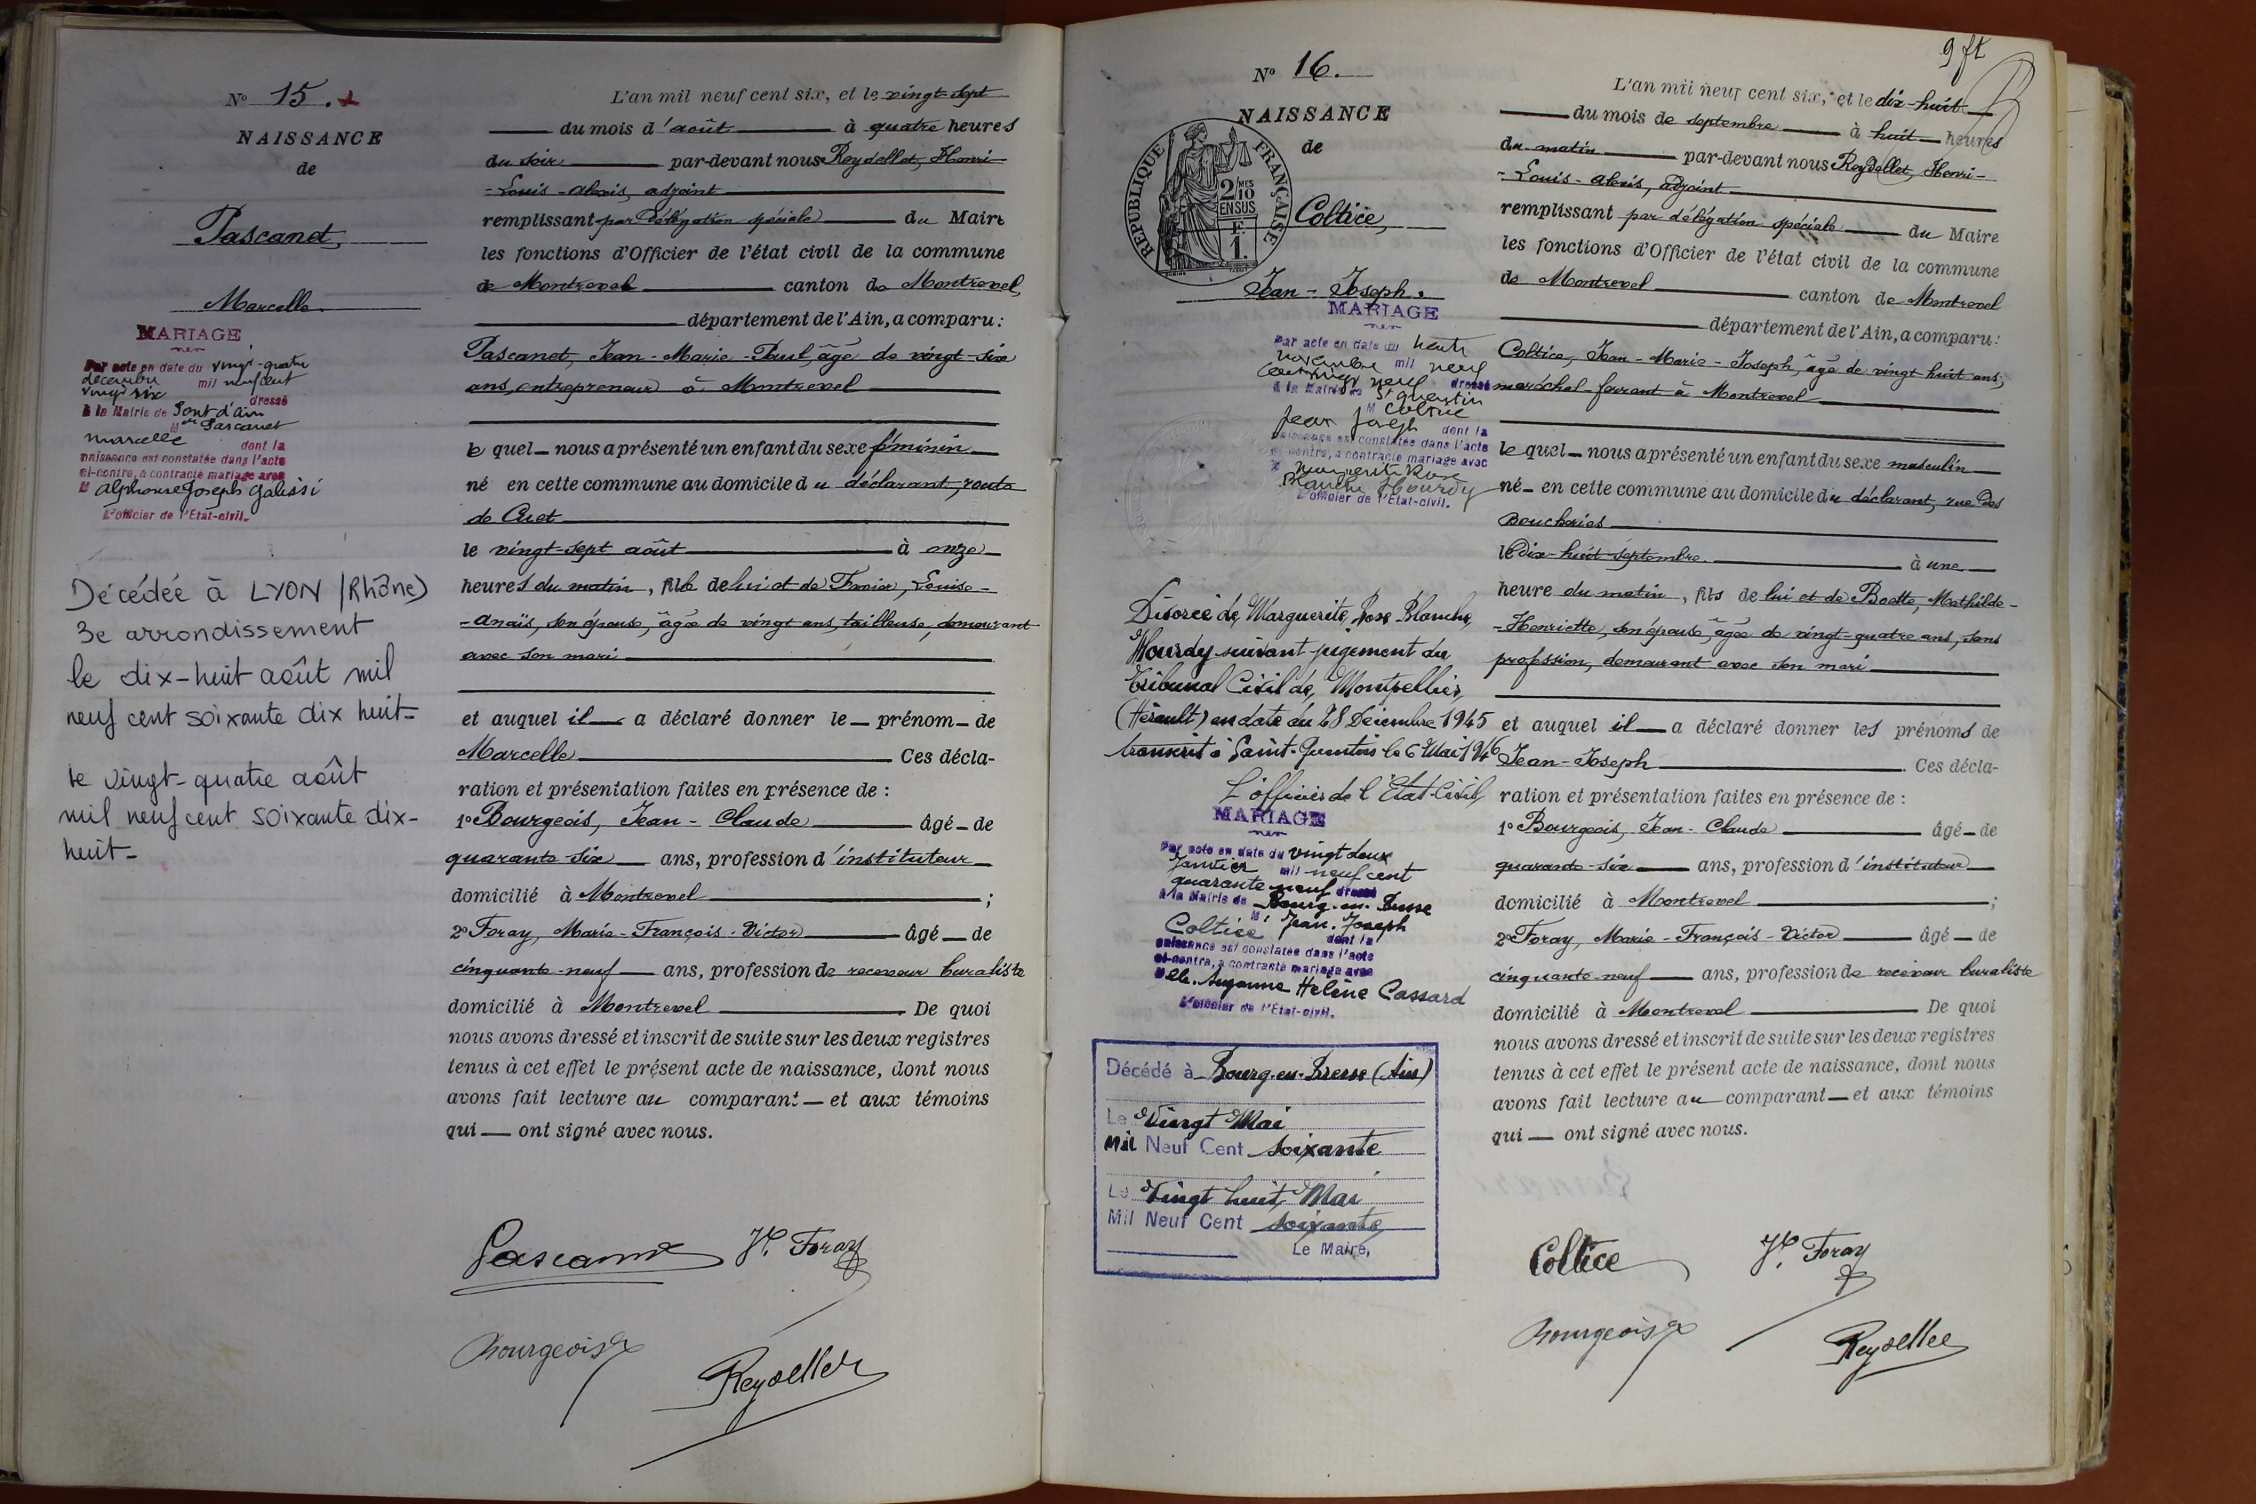 N° 15.
NAISSANCE
de
Pascanet,
Marcelle
MARIAGE
Par acte en date du vingt-quatre
décembre mil neuf cent
vingt six dressé
à la Mairie de Pont d'ain
M elle Pascanet
marcelle dont la
naissance est constatée dans l'acte
ci-contre, a contracté mariage avec
M alphonse Joseph Galissi
L'officier de l'Etat-civil.
Décédée à LYON (Rhône)
3e arrondissement
le dix-huit août mil
neuf cent soixante dix huit-
le vingt-quatre août
mil neuf cent soixante dix-
huit-
L'an mil neuf cent six, et le vingt-sept
du mois d'août à quatre heures
du soir par-devant nous Reydellet, Henri
-Louis-alexis, adjoint
remplissant par délégation spéciale du Maire
les fonctions d'Officier de l'état civil de la commune
de Montrevel canton de Montrevel,
département de l'Ain, a comparu :
Pascanet, Jean-Marie-Paul, âgé de vingt-six
ans, entrepreneur à Montrevel
le quel nous a présenté un enfant du sexe féminin
né en cette commune au domicile du déclarant, route
de Cuet
le vingt-sept août à onze
heures du matin, fille de lui et de Louise-
-anaïs, son épouse, âgée de vingt ans, tailleuse, demeurant
avec son mari
et auquel il a déclaré donner le prénom de
Marcelle Ces décla-
ration et présentation faites en présence de :
1° Bourgeois, Jean-Claude âgé de
quarante-six ans, profession d'instituteur
domicilié à Montrevel ;
2° Foray, Marie-François-Victor âgé de
cinquante-neuf ans, profession de receveur buraliste
domicilié à Montrevel De quoi
nous avons dressé et inscrit de suite sur les deux registres
tenus à cet effet le présent acte de naissance, dont nous
avons fait lecture au comparant et aux témoins
qui ont signé avec nous.
Pascanet Vor Foray
Bourgeois
Reydellet
9 ft
N° 16.
NAISSANCE
de
RÉPUBLIQUE FRANÇAISE
2/10 MES
EN SUS
F.
1.
Coltice,
Jean-Joseph.
MARIAGE
Par acte en date du trente
novembre mil neuf
cent vingt neuf dressé
à la Mairie de St Quentin
M Coltice
Jean Joseph dont la
naissance est constatée dans l'acte
ci-contre, a contracté mariage avec
M Marguerite Rose
Blanche Hourdy
L'officier de l'Etat-civil.
Divorcé de Marguerite Rose Blanche
Hourdy suivant jugement du
Tribunal Civil de Montpellier
(Hérault) en date du 28 Décembre 1945
transcrit à Saint-Quentin le 6 Mai 1946
L'officier de l'Etat-Civil,
MARIAGE
Par acte en date du vingt deux
Janvier mil neuf cent
quarante neuf dressé
à la Mairie de Bourg-en-Bresse
M r Jean-Joseph
Coltice dont la
naissance est constatée dans l'acte
ci-contre, a contracté mariage avec
Melle. Suzanne Hélène Cassard
L'officier de l'Etat-civil.
Décédé à Bourg-en-Bresse (Ain)
Le Vingt Mai
Mil Neuf Cent soixante
Le Vingt huit Mai
Mil Neuf Cent soixante
Le Maire,
L'an mil neuf cent six, et le dix-huit
du mois de septembre à huit heures
du matin par-devant nous Reydellet, Henri-
-Louis-alexis, adjoint
remplissant par délégation spéciale du Maire
les fonctions d'Officier de l'état civil de la commune
de Montrevel canton de Montrevel
département de l'Ain, a comparu :
Coltice, Jean-Marie-Joseph, âgé de vingt huit ans,
maréchal-ferrant à Montrevel
le quel nous a présenté un enfant du sexe masculin
né en cette commune au domicile du déclarant, rue des
Boucheries
le dix-huit septembre à une
heure du matin, fils de lui et de Mathilde-
-Henriette, son épouse, âgée de vingt-quatre ans, sans
profession, demeurant avec son mari
et auquel il a déclaré donner les prénoms de
Jean-Joseph Ces décla-
ration et présentation faites en présence de :
1° Bourgeois, Jean-Claude âgé de
quarante-six ans, profession d'instituteur
domicilié à Montrevel ;
2° Foray, Marie-François-Victor âgé de
cinquante-neuf ans, profession de receveur buraliste
domicilié à Montrevel De quoi
nous avons dressé et inscrit de suite sur les deux registres
tenus à cet effet le présent acte de naissance, dont nous
avons fait lecture au comparant et aux témoins
qui ont signé avec nous.
Coltice Vor Foray
Bourgeois
Reydellet